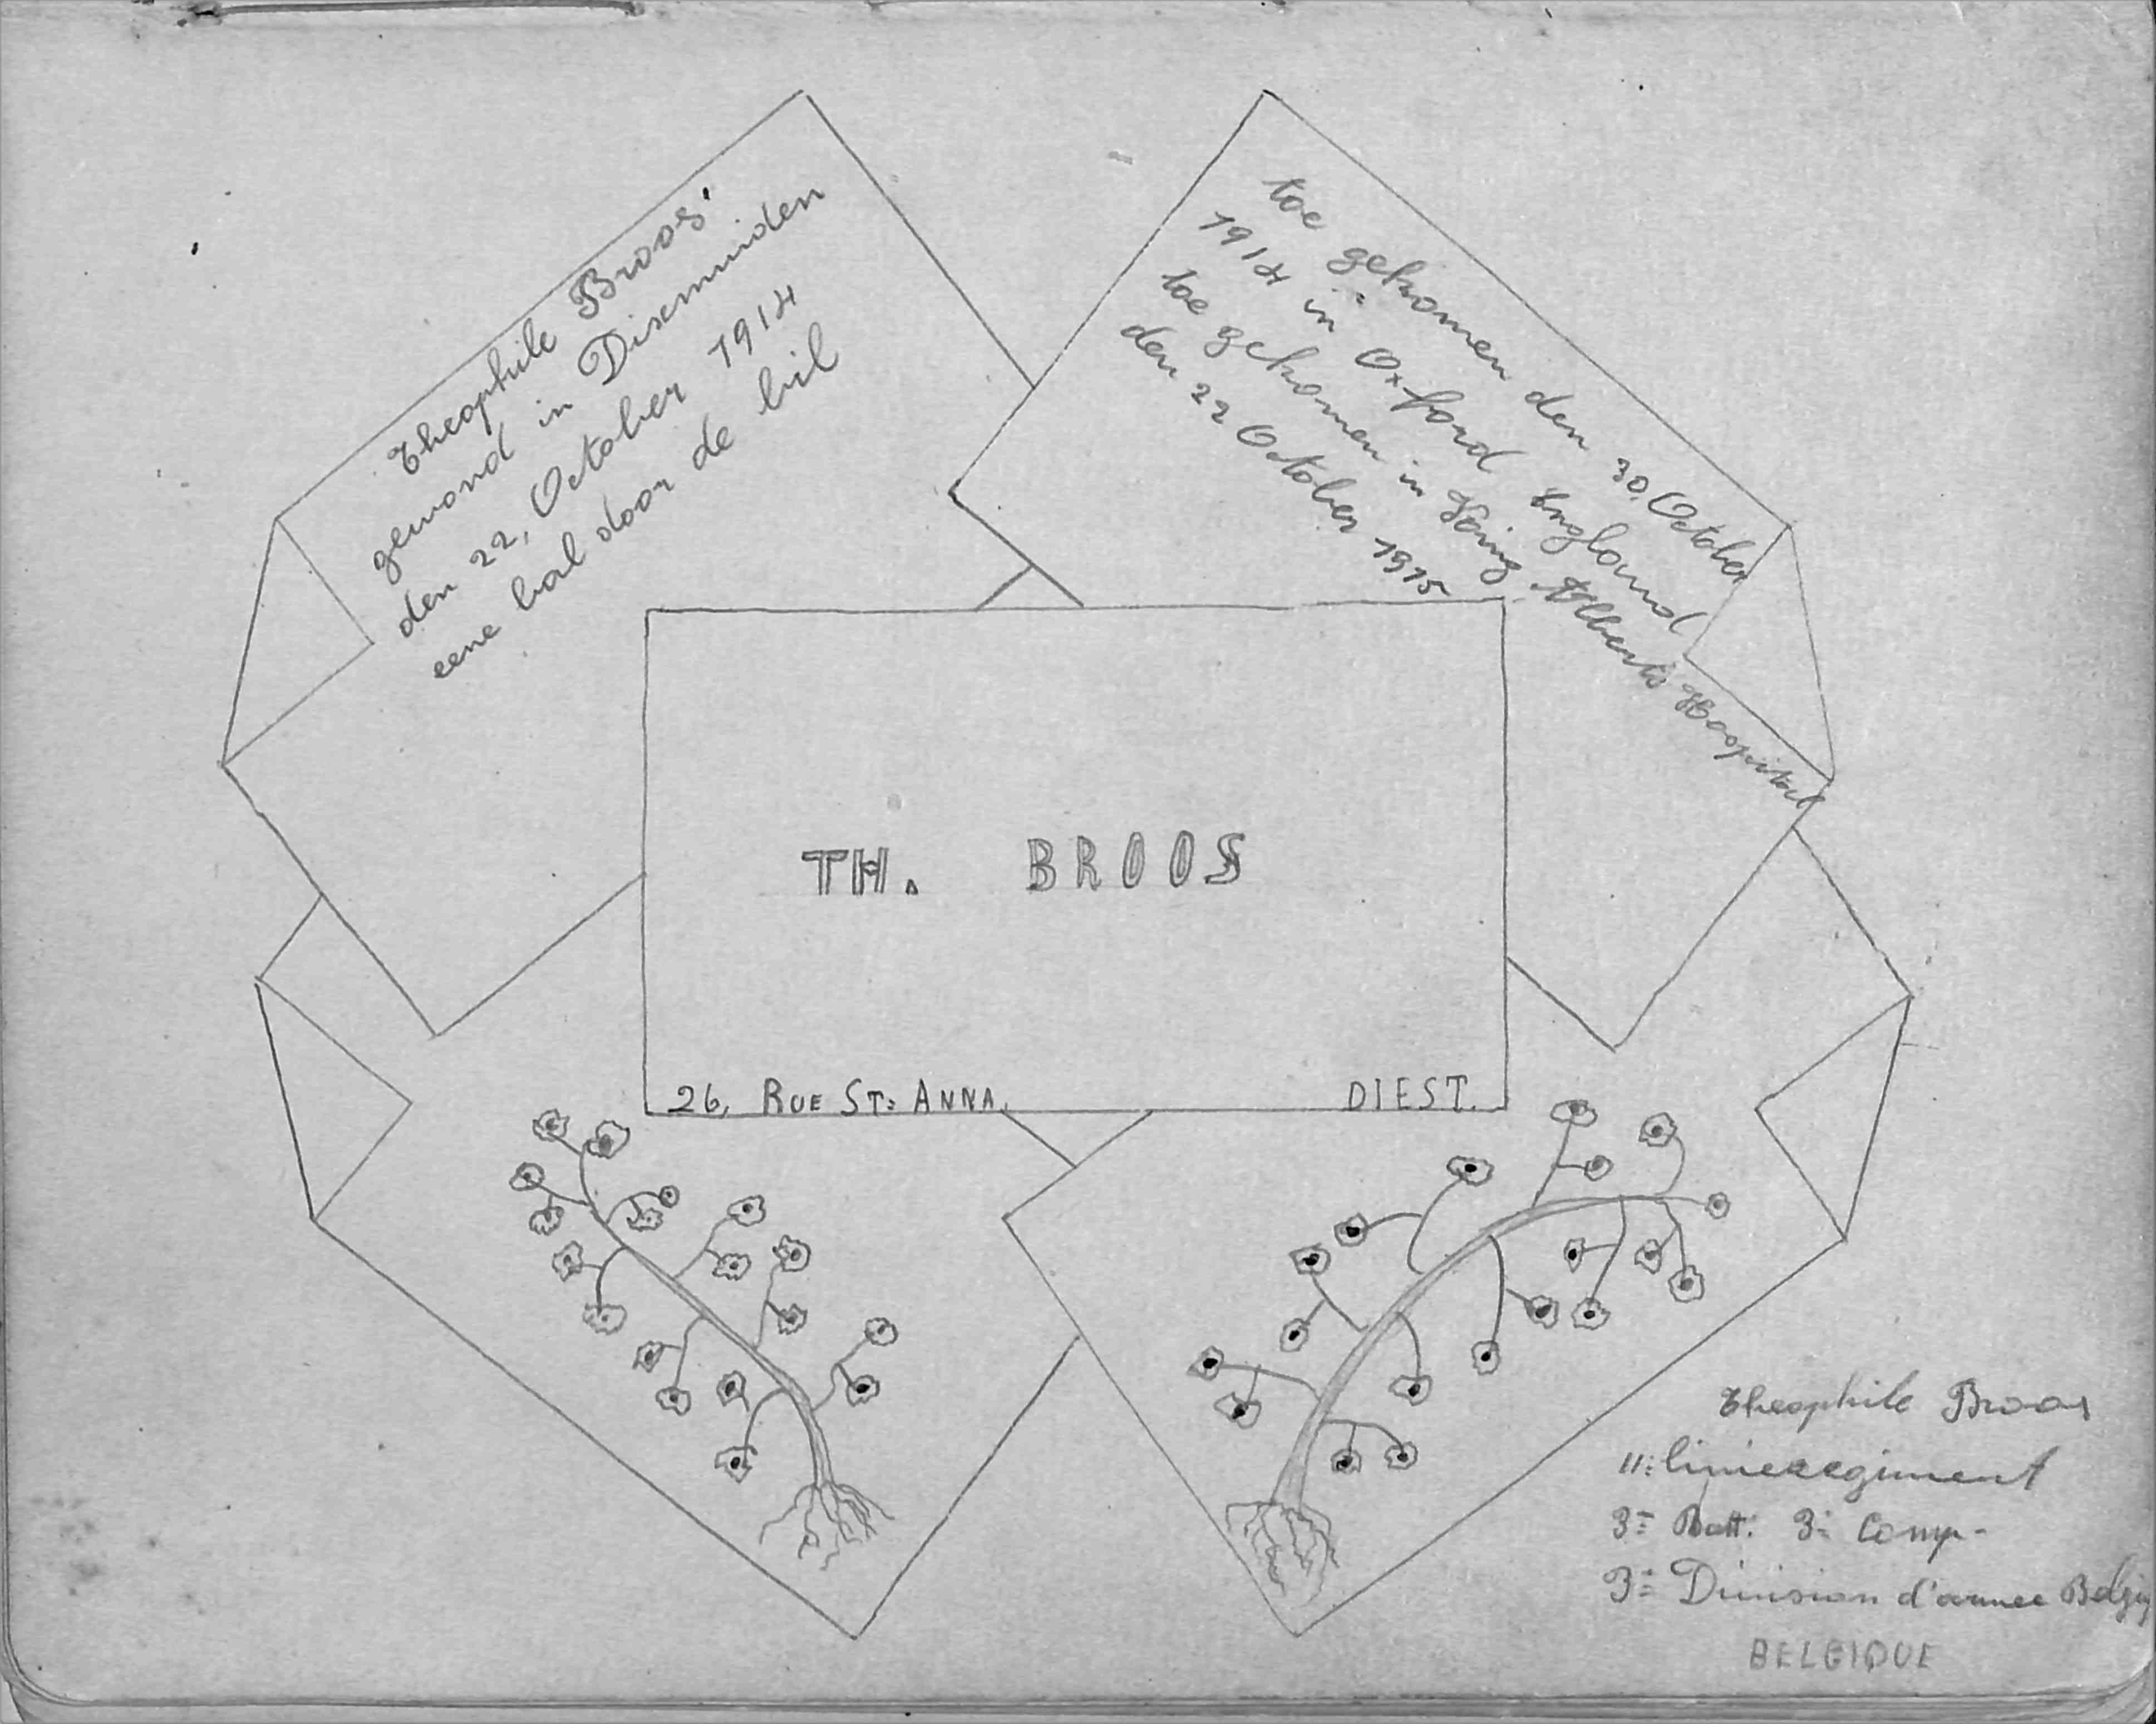 Theophile Broos
gewond in Dixmuiden
den 22, October 1914
eene bal door de bil
toe gekomen den 30, October
1914 in Oxford England
toe gekomen in King Alberts Hospital
den 22 October 1915
TH. BROOS
26, RUE ST: ANNA. DIEST.
Theophile Broos
11: linieregiment
3e Batt: 3e Comp-
3e Division d'armee Belgi
BELGIQUE